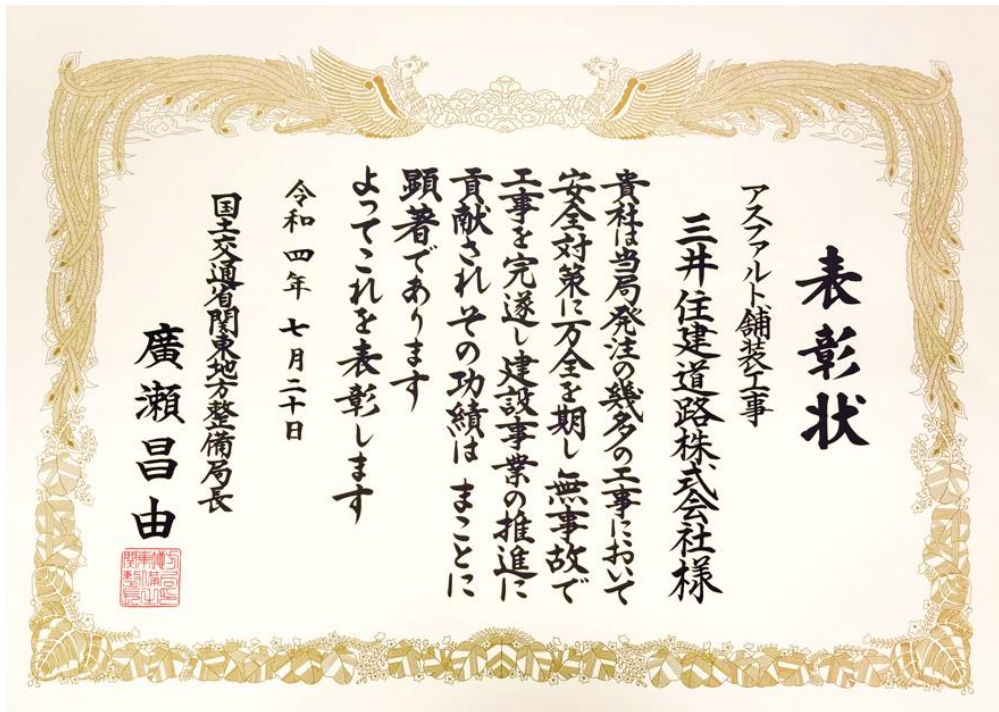 表彰状
アスファルト舗装工事
三井住建道路株式会社様
貴社は当局発注の幾多の工事において
安全対策に万全を期し 無事故で
工事を完遂し建設事業の推進に
貢献されその功績は まことに
顕著であります
よってこれを表彰します
令和四年 七月二十日
国土交通省関東地方整備局長
廣瀬昌由